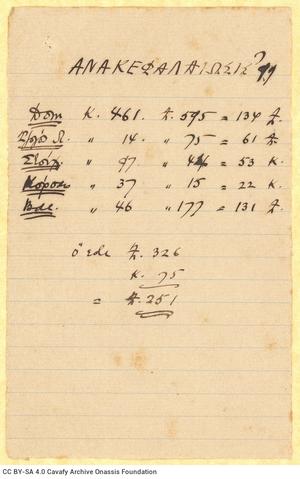 ΑΝΑΚΕΦΑΛΑΙΩΣΙΣ '99
Κ. 461. 595 = 134
" 14 " 75 = 61
" 97 " 44 = 53 Κ
" 37 " 15 = 22 Κ
" 46 " 177 = 131
326
Κ. 75
= 251
CC BY-SA 4.0 Cavafy Archive Onassis Foundation